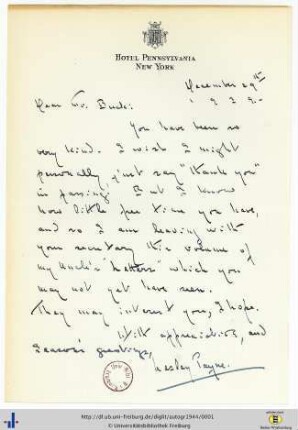 HOTEL PENNSYLVANIA
NEW YORK
December 29th
Dear Mr. Buck:
You have been so
very kind. I wish I might
personally just say "thank you"
in passing. But I know
how little free time you have,
and so I am leaving with
your secretary this volume of
my Uncle's "Letters" which you
may not yet have seen.
They may interest you, I hope.
With appreciation, and
Season's greetings,
Payne.
http://dl.ub.uni-freiburg.de/diglit/autogr1944/0001
© Universitätsbibliothek Freiburg